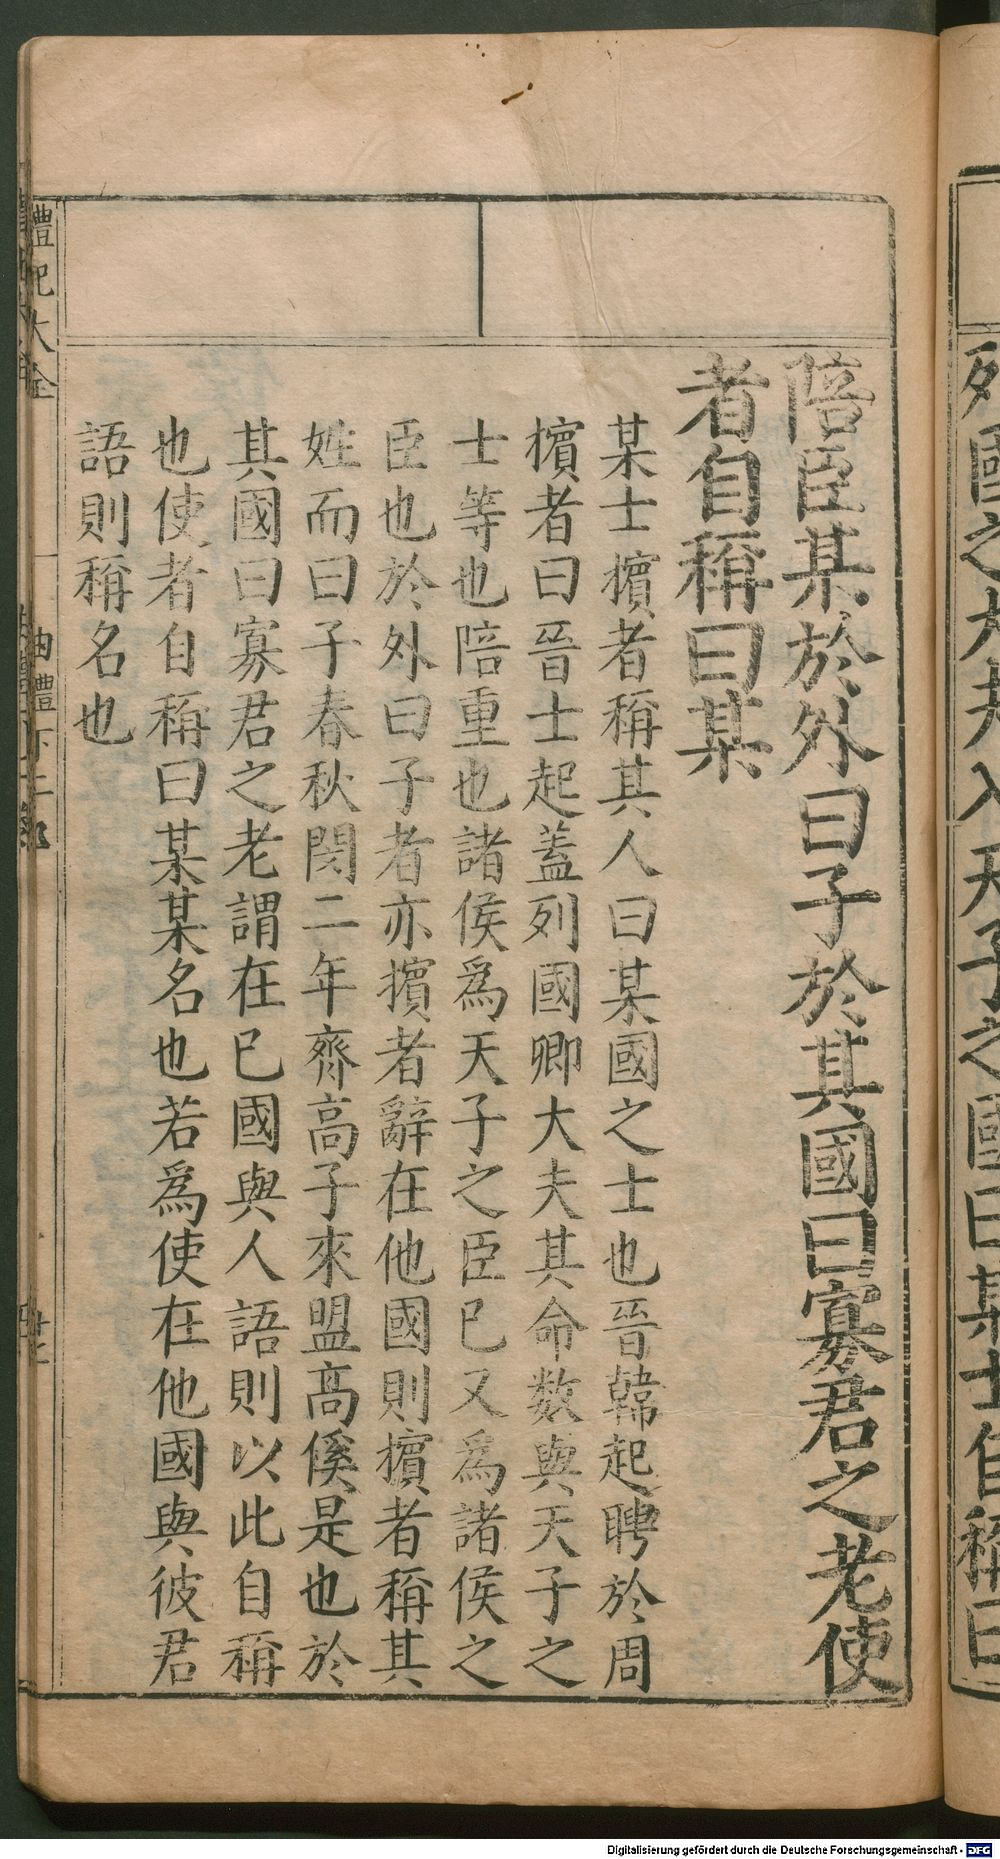 列國之大夫入天子之國曰某士自稱曰
陪臣某於外曰子於其國曰寡君之老使
者自稱曰某
某士擯者稱其人曰某國之士也晉韓起聘於周
擯者曰晉士起蓋列國卿大夫其命数與天子之
士等也陪重也諸侯爲天子之臣已又爲諸侯之
臣也於外曰子者亦擯者辭在他國則擯者稱其
姓而曰子春秋閔二年齊高子來盟高傒是也於
其國曰寡君之老謂在已國與人語則以此自稱
也使者自稱曰某某名也若爲使在他國與彼君
語則稱名也
禮記大全
曲禮下二
Digitalisierung gefördert durch die Deutsche Forschungsgemeinschaft - DFG